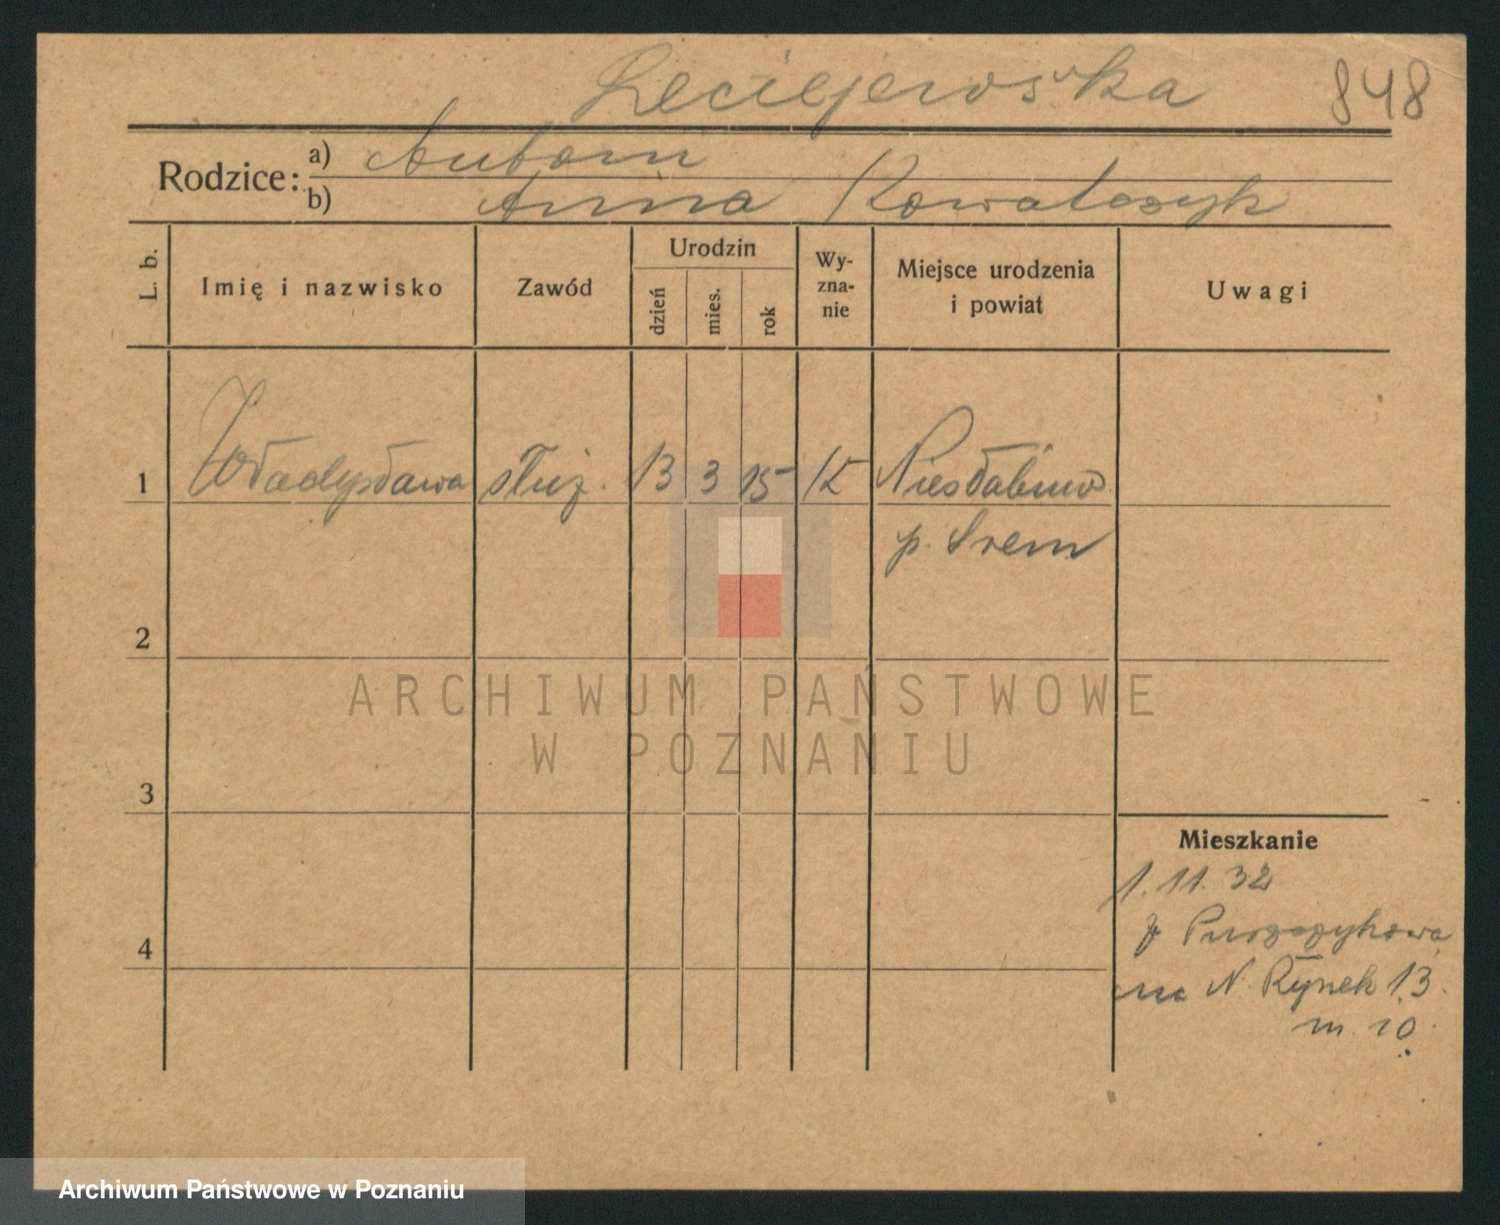 Leciejewska 848
Rodzice: a) Antoni
b) Anna Kowalczyk
L. b. Imię i nazwisko Zawód Urodzin Wy-
zna-
nie Miejsce urodzenia
i powiat Uwagi
dzień mies. rok
1 Władysława służ. 13 3 15 K Niesłabino
p. Srem
2
ARCHIWUM PAŃSTWOWE
W POZNANIU
3
Mieszkanie
1.11.32
4
na N. Rynek 13.
m. 10.
Archiwum Państwowe w Poznaniu